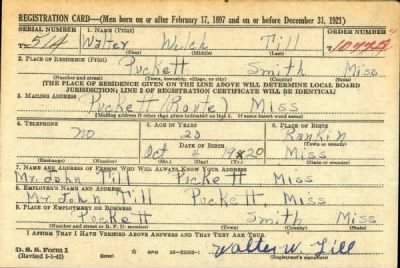 REGISTRATION CARD—(Men born on or after February 17, 1897 and on or before December 31, 1921)
SERIAL NUMBER 1. NAME (Print) ORDER NUMBER
514 Walter Welch Till
(First) (Middle) (Last)
2. PLACE OF RESIDENCE (Print)
Puckett Smith Miss
(Number and street) (Town, township, village, or city) (County) (State)
[THE PLACE OF RESIDENCE GIVEN ON THE LINE ABOVE WILL DETERMINE LOCAL BOARD
JURISDICTION; LINE 2 OF REGISTRATION CERTIFICATE WILL BE IDENTICAL]
3. MAILING ADDRESS
Puckett (Route) Miss
[Mailing address if other than place indicated on line 2. If same insert word same]
4. TELEPHONE 5. AGE IN YEARS 6. PLACE OF BIRTH
NO Rankin
DATE OF BIRTH (Town or county)
Oct 1920 Miss
(Exchange) (Number) (Mo.) (Day) (Yr.) (State or country)
7. NAME AND ADDRESS OF PERSON WHO WILL ALWAYS KNOW YOUR ADDRESS
Mr. John Till Puckett Miss
8. EMPLOYER'S NAME AND ADDRESS
Mr John Till Puckett, Miss
9. PLACE OF EMPLOYMENT OR BUSINESS
Puckett Smith Miss
(Number and street or R. F. D. number) (Town) (County) (State)
I AFFIRM THAT I HAVE VERIFIED ABOVE ANSWERS AND THAT THEY ARE TRUE.
D. S. S. Form 1 GPO Walter W. Till
(Revised 1-1-42) (Registrant's signature)